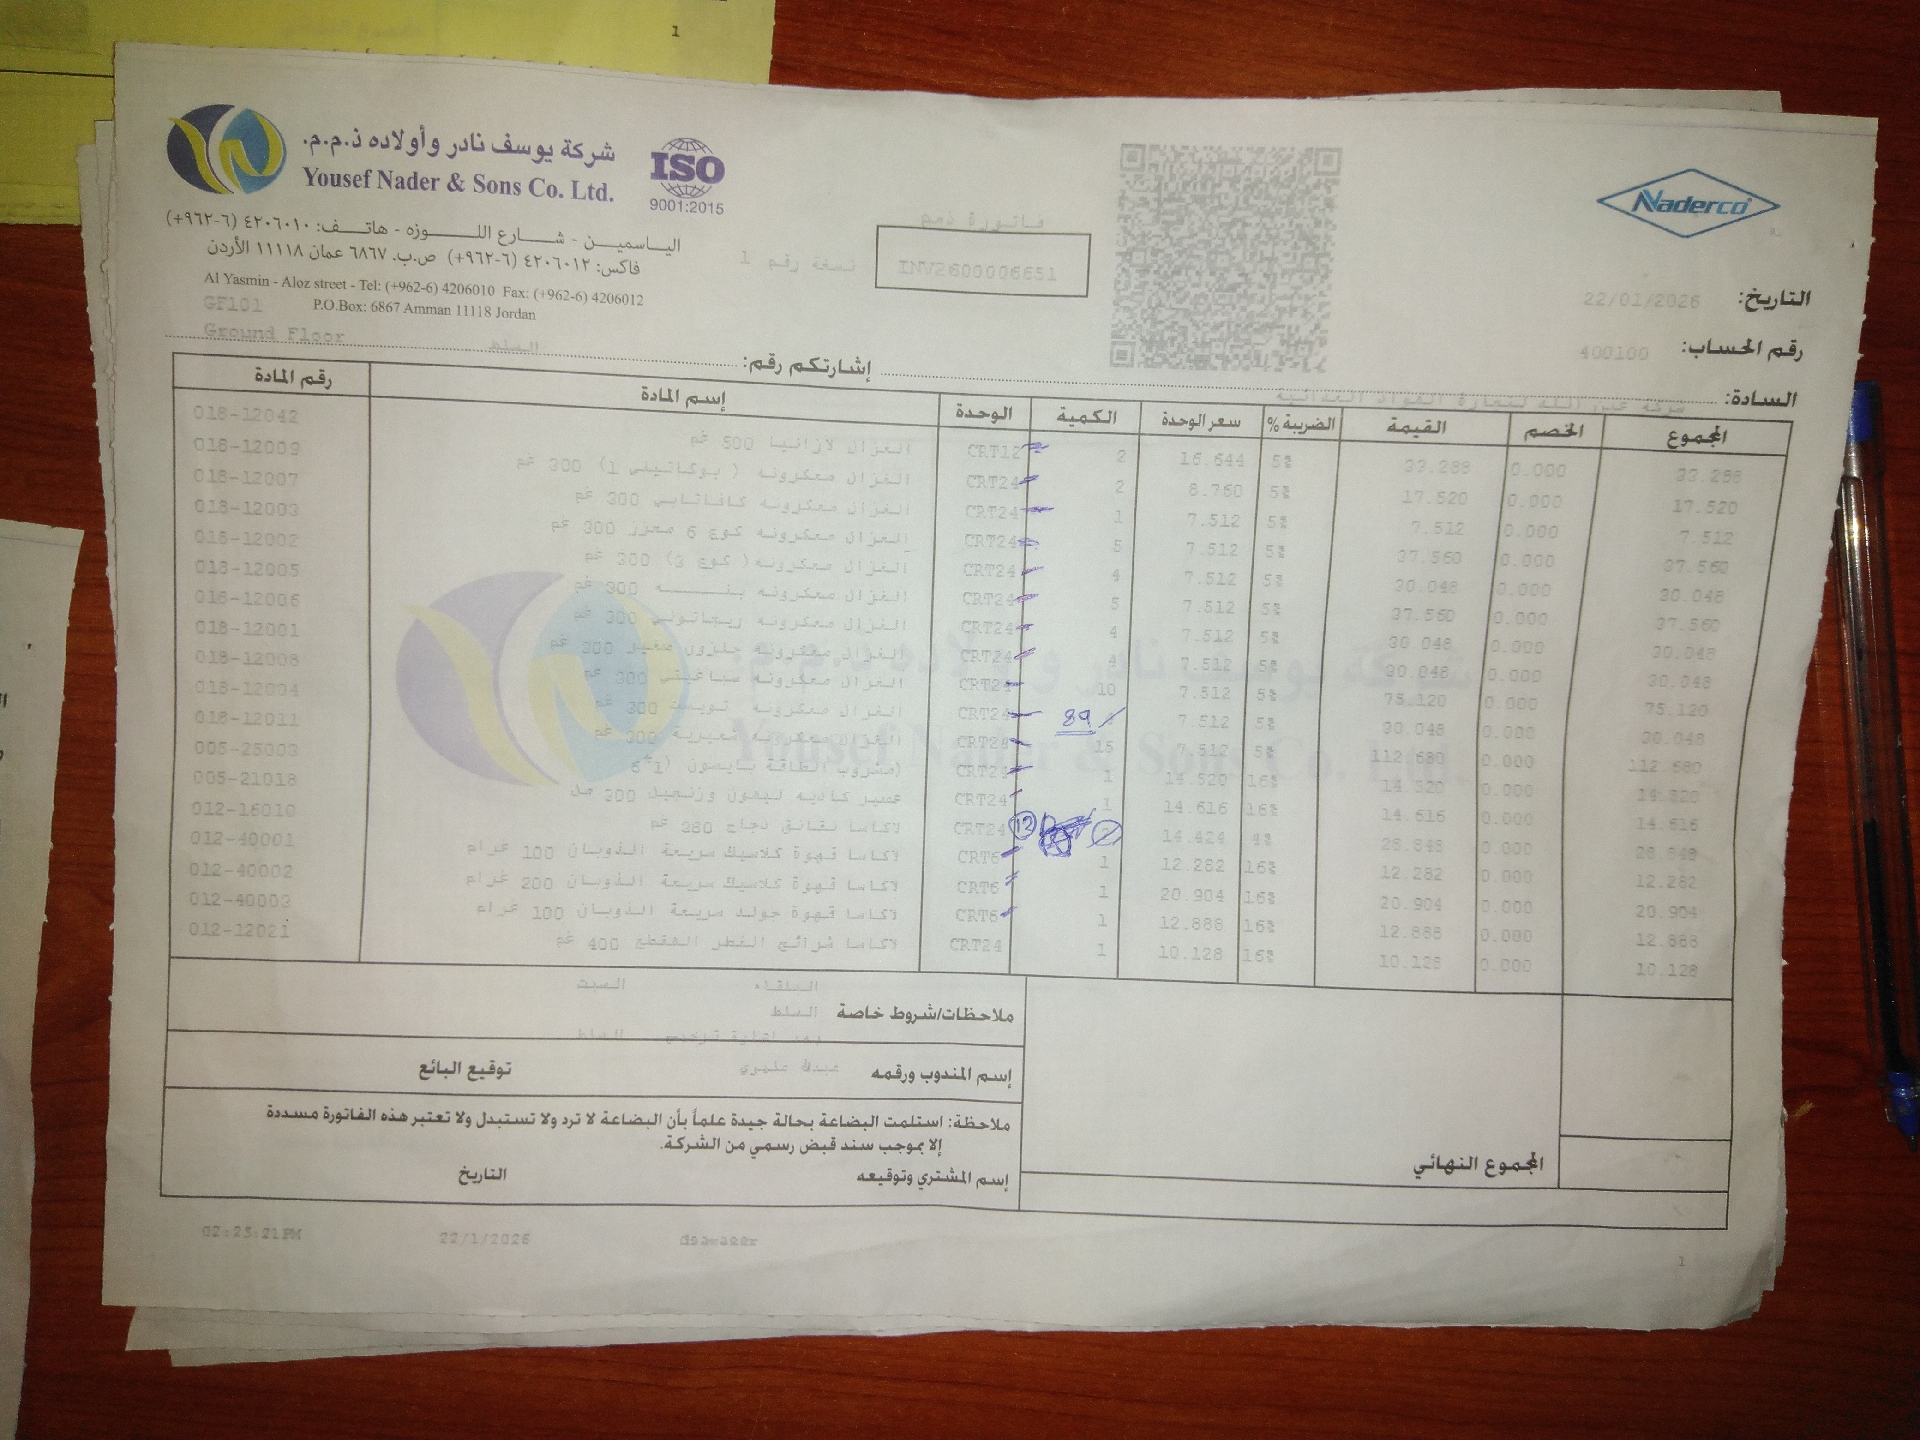 1
شركة يوسف نادر وأولاده ذ.م.م.
Yousef Nader & Sons Co. Ltd.
ISO
9001:2015
الياسمين - شارع اللوزه - هاتف: ٤٢٠٦٠١٠ (٦-٩٦٢+)
فاكس: ٤٢٠٦٠١٢ (٦-٩٦٢+) ص.ب. ٦٨٦٧ عمان ١١١١٨ الأردن
Al Yasmin - Aloz street - Tel: (+962-6) 4206010 Fax: (+962-6) 4206012
P.O.Box: 6867 Amman 11118 Jordan
GF101
Ground Floor
السلط
فاتورة ذمم
نسخة رقم 1
INV2600006651
Naderco
التاريخ: 22/01/2026
رقم الحساب: 400100
إشارتكم رقم:
السادة:
رقم المادة إسم المادة الوحدة الكمية سعر الوحدة الضريبة % القيمة الخصم المجموع
018-12042 الغزال لازانيا 500 غم CRT12 2 16.644 5% 33.288 0.000 33.288
018-12009 الغزال معكرونه ( بوكاتيني 1) 300 غم CRT24 2 8.760 5% 17.520 0.000 17.520
018-12007 الغزال معكرونه كافاتابي 300 غم CRT24 1 7.512 5% 7.512 0.000 7.512
018-12003 الغزال معكرونه كوع 6 محزز 300 غم CRT24 5 7.512 5% 37.560 0.000 37.560
018-12002 الغزال معكرونه ( كوع 3) 300 غم CRT24 4 7.512 5% 30.048 0.000 30.048
018-12005 الغزال معكرونه بنــــه 300 غم CRT24 5 7.512 5% 37.560 0.000 37.560
018-12006 الغزال معكرونه ريجاتوني 300 غم CRT24 4 7.512 5% 30.048 0.000 30.048
018-12001 الغزال معكرونه حلزون صغير 300 غم CRT24 4 7.512 5% 30.048 0.000 30.048
018-12008 الغزال معكرونه سباغيتي 300 غم CRT24 10 7.512 5% 75.120 0.000 75.120
018-12004 الغزال معكرونه تويست 300 غم CRT24 89 7.512 5% 30.048 0.000 30.048
018-12011 الغزال معكرونه شعيرية 300 غم CRT28 15 7.512 5% 112.680 0.000 112.680
005-25003 (مشروب الطاقة بايسون CRT24 1 14.520 16% 14.520 0.000 14.520
005-21018 عصير كاديه ليمون وزنجبيل 300 مل CRT24 1 14.616 16% 14.616 0.000 14.616
012-16010 لاكاسا نقانق دجاج 380 غم CRT24 12 2 14.424 4% 28.848 0.000 28.848
012-40001 لاكاسا قهوة كلاسيك سريعة الذوبان 100 غرام CRT6 1 12.282 16% 12.282 0.000 12.282
012-40002 لاكاسا قهوة كلاسيك سريعة الذوبان 200 غرام CRT6 1 20.904 16% 20.904 0.000 20.904
012-40003 لاكاسا قهوة جولد سريعة الذوبان 100 غرام CRT6 1 12.888 16% 12.888 0.000 12.888
012-12021 لاكاسا شرائح الفطر المقطع 400 غم CRT24 1 10.128 16% 10.128 0.000 10.128
البلقاء السبت
ملاحظات/شروط خاصة السلط
إسم المندوب ورقمه توقيع البائع
ملاحظة: استلمت البضاعة بحالة جيدة علماً بأن البضاعة لا ترد ولا تستبدل ولا تعتبر هذه الفاتورة مسددة
إلا بموجب سند قبض رسمي من الشركة.
إسم المشتري وتوقيعه التاريخ
المجموع النهائي
02:23:21PM 22/1/2026
1